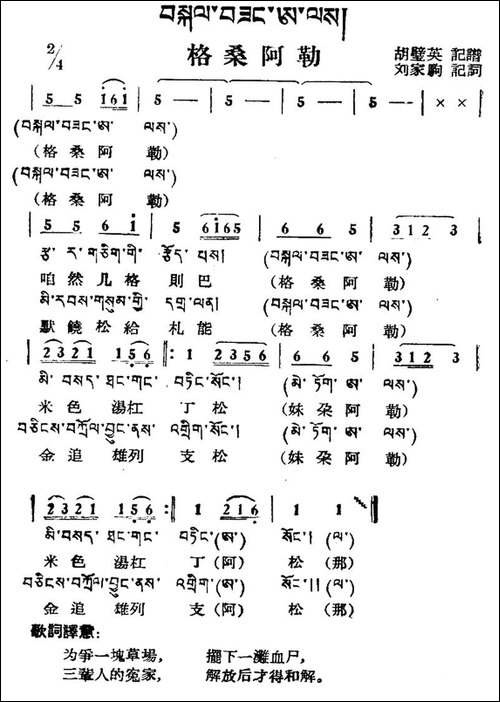 བསྐལ་བཟང་ཨ་ལས།
2/4 格桑阿勒 胡璧英 記譜
刘家駒 記詞
| 5 5 i6i | 5 — | 5 — | 5 — | 5 — | × × |
(བསྐལ་བཟང་ཨ་ ལས་)
(格 桑 阿 勒)
(བསྐལ་བཟང་ཨ་ ལས་)
(格 桑 阿 勒)
| 5 5 6 i | 5 6i65 | 6 6 5 | 312 3 |
རྩྭ་ར་གཅིག་གི་ རྩོད་པས། (བསྐལ་བཟང་ཨ་ ལས་)
咱 然 几 格 則 巴 (格 桑 阿 勒)
མི་རབས་གསུམ་གྱི་ དགྲ་ལན། (བསྐལ་བཟང་ཨ་ ལས་)
默 饒 松 給 札 能 (格 桑 阿 勒)
| 2321 156 |: 1 2356 | 6 6 5 | 312 3 |
མི་བསད་ཐང་གང་ བཏིང་སོང་། (མེ་ཏོག་ཨ་ ལས་)
米 色 湯杠 丁 松 (妹 朶 阿 勒)
བཅིངས་བཀྲོལ་བྱུང་ནས་ འགྲིག་སོང་། (མེ་ཏོག་ཨ་ ལས་)
金 追 雄列 支 松 (妹 朶 阿 勒)
| 2321 156 :| 1 216 | 1 1 ||
མི་བསད་ ཐང་གང་ བཏིང་(ཨ་) སོང་། (ལ་)
米 色 湯杠 丁 (阿) 松 (那)
བཅིངས་བཀྲོལ་བྱུང་ནས་ འགྲིག་(ཨ་) སོང་།། (ལ་)
金 追 雄列 支 (阿) 松 (那)
歌詞譯意:
为爭一塊草場, 擺下一灘血尸,
三輩人的寃家, 解放后才得和解。